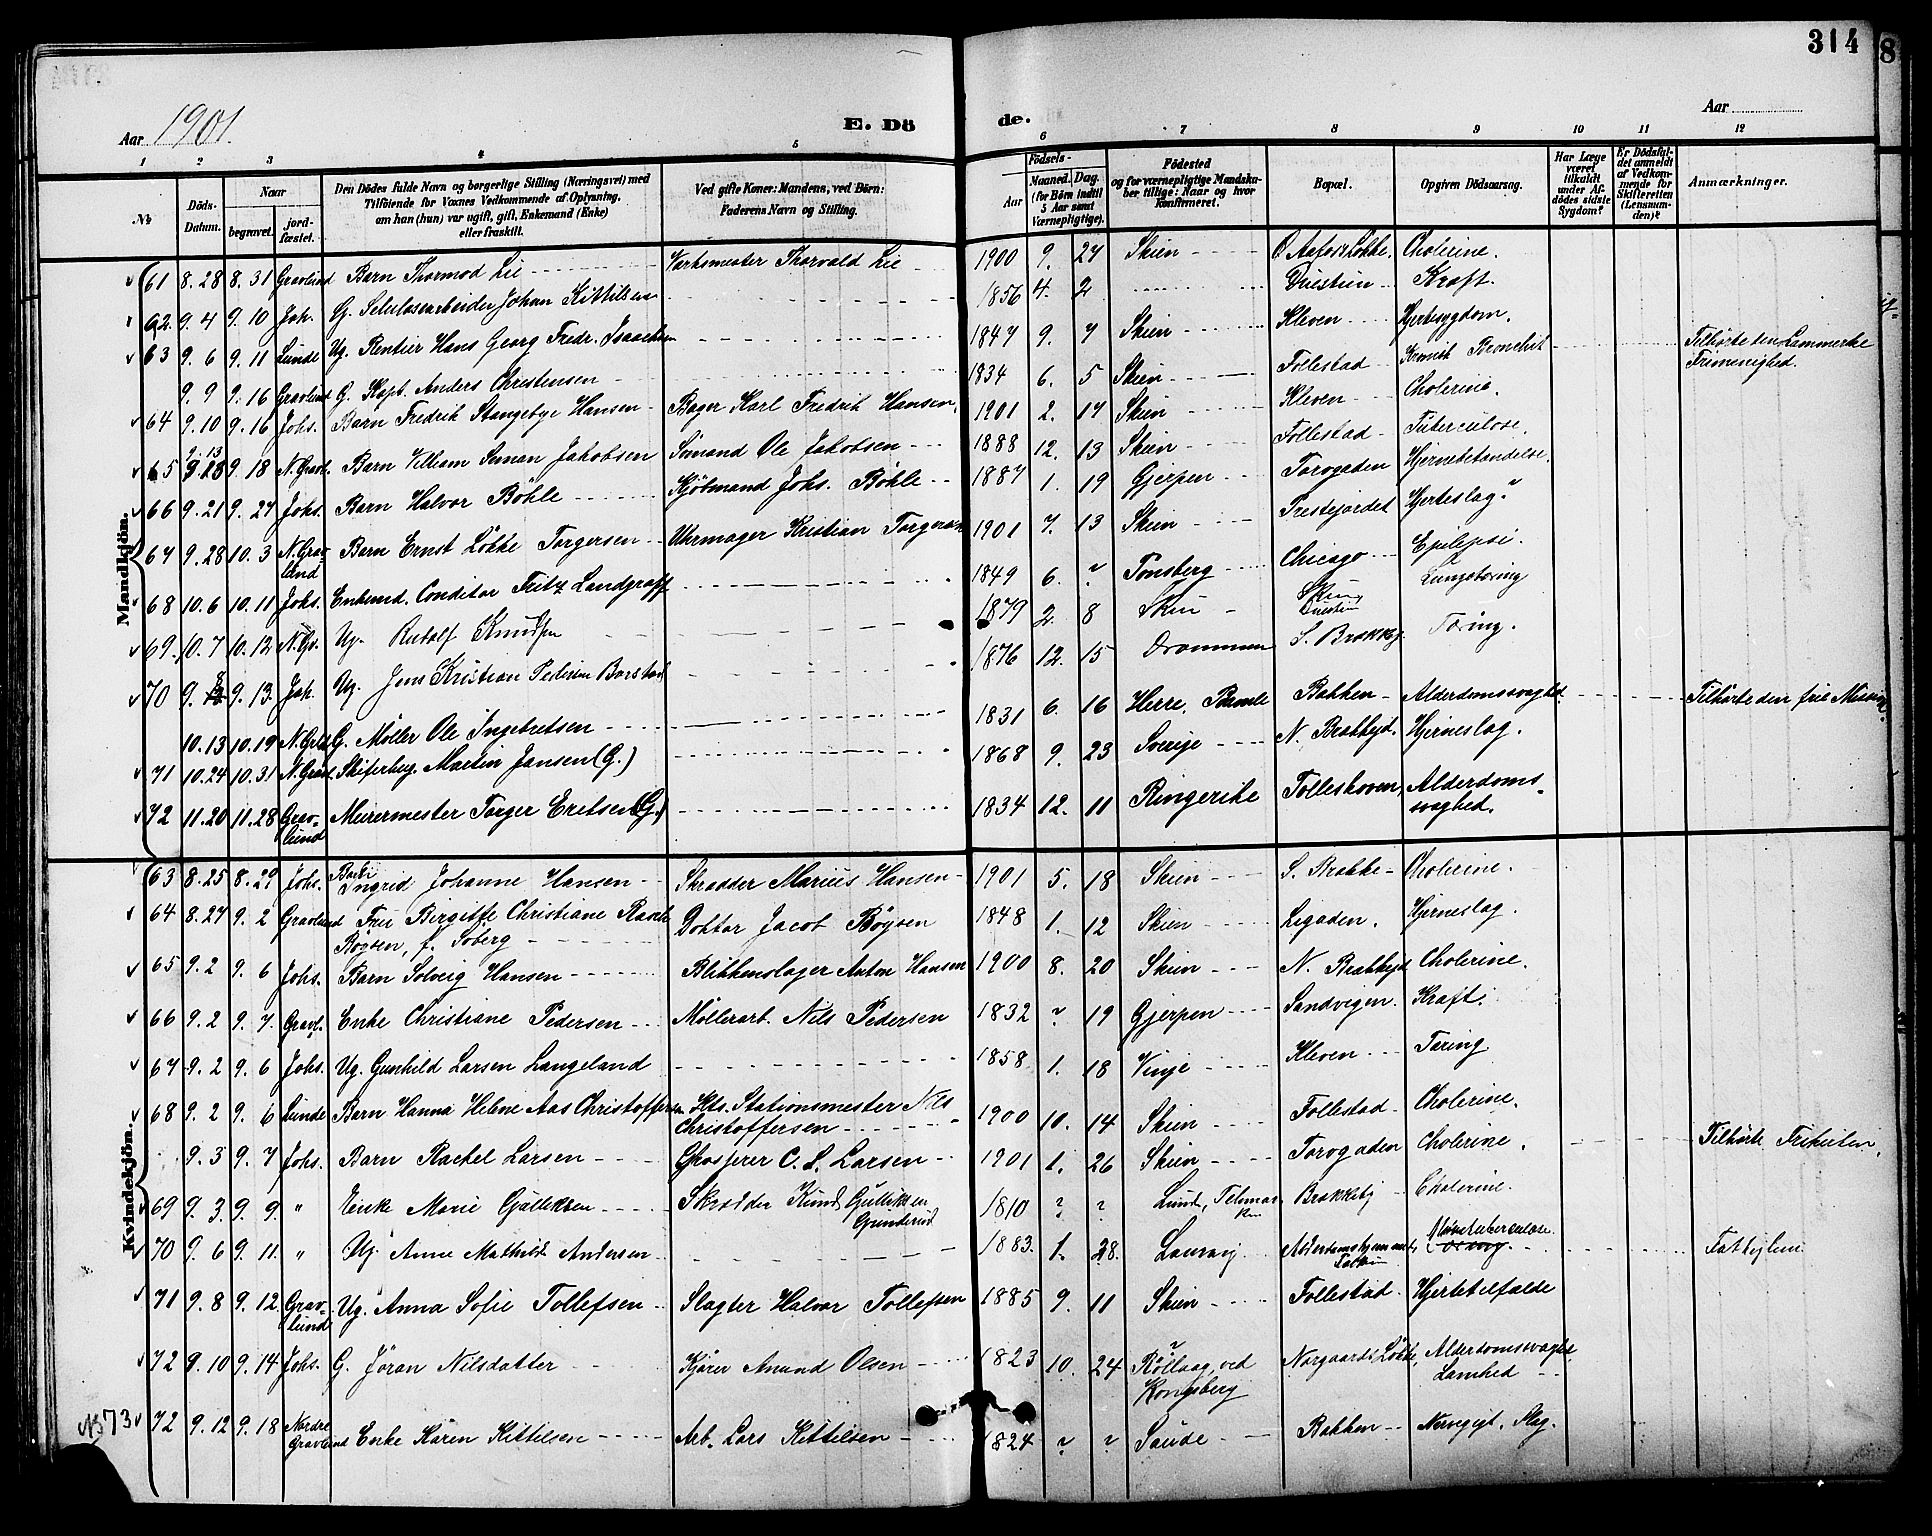 314
8
Aar 1901.
E. Dö
de.
Aar
1 2 3 4 5 6 7 8 9 10 11 12
№
Döds-Datum.
Naar
begravet.
jord-fæstet.
Den Dödes fulde Navn og borgerlige Stilling (Næringsvei) med
Tilföiende for Voxnes Vedkommende af Oplysning,
om han (hun) var ugift, gift, Enkemand (Enke)
eller fraskilt.
Ved gifte Koner: Mandens, ved Börn:
Faderens Navn og Stilling.
Födsels-
Aar
Maaned. Dag.
(for Börn indtil
5 Aar samt
Værnepligtige).
Födested
og for værnepligtige Mandska-
ber tillige: Naar og hvor
konfirmeret.
Bopæl.
Opgiven Dödsaarsag.
Har Læge
været
tilkaldt
under Af-
dödes sidste
Sygdom?
Er Dödsfal-
det anmeldt
af Vedkom-
mende for
Skifteretten
(Lensman-
den)?
Anmærkninger.
Mandkjön.
61 8.28 8.31 Gravlund Barn Thormod Lie Værksmester Thorvald Lie 1900 9. 27 Skien Ö. Aafos Løkke. Cholerine.
62. 9.4 9.10 Joh. G. Selulosearbeider Johan Kittilsen 1856 4. 2 Duestien Kræft.
63 9.6 9.11 Lunde Ug. Rentier Hans Georg Fredr. Isaachsen 1847 9. 7 Skien Kleven Hjertesygdom.
9.9 9.16 Gravlund G. Kapt. Anders Christensen 1834 6. 5 Skien Follestad Kronisk Bronchit Tilhørte den Lammerske
Frimenighed.
64 9.10 9.16 Johs. Barn Fredrik Stangebye Hansen Bager Karl Fredrik Hansen. 1901 2. 17 Skien Kleven Cholerine.
65 9.13 9.18 N. Gravl. Barn Villiam Seman Jakobsen Sömand Ole Jakobsen 1888 12. 13 Skien Follestad Tuberculose.
66 9.21 9.27 Johs. Barn Halvor Böhle Kjöbmand Johs. Böhle 1887 1. 19 Gjerpen Torvgaden Hjernebetændelse.
67 9.28 10.3 N. Grav-
lund Barn Ernst Lökke Torgersen Uhrmager Kristian Torgersen 1901 7. 13 Skien Prestejordet Hjerteslag?
68 10.6 10.11 Johs. Enkemd. Conditor Fritz Landgraff 1849 6. ? Tönsberg Chicago Epilepsi.
69. 10.7 10.12 N. Gr. Ug. Rudolf Knudsen 1879 2 8 Skien Skien
Duestien Lungetæring
70 9.8 9.13. Joh. Ug. Jens Kristian Pedersen Borstad 1876 12. 15 Drammen S. Brækkeg. Tæring.
10.13 10.19 N. Grvl. G. Möller Ole Ingebretsen 1831 6. 16 Herre, Bamle Bakken Alderdomssvaghed. Tilhørte den frie Mission.
71 10.24 10.31 N. Gravl. Skiferbryg. Martin Jansen (G.) 1868 9. 23 Sverige N. Brækkegd. Hjerneslag.
72 11.20 11.28 Grav-
lund Murermester Torger Eretsen (G.) 1834 12. 11 Ringerike Tolleshoven, Alderdoms-
svaghed.
Kvindekjön.
63 8.25 8.29 Johs. Barn
Ingrid Johanne Hansen Skrædder Marius Hansen 1901 5. 18 Skien S. Brække Cholerine.
64 8.27 9.2 Gravlund Frue Birgitte Christiane Rasch
Böysen, f. Söberg Doktor Jacob Böysen 1848 1. 12 Skien Ligaden. Hjerneslag.
65 9.2 9.6 Johs. Barn Solveig Hansen Blikkenslager Anton Hansen 1900 8. 20 Skien N. Brækkegd. Cholerine.
66 9.2 9.7. Gravl. Enke Christiane Pedersen Möllerarb. Nils Pedersen 1832 ? 19 Gjerpen Sandvigen. Kræft.
67 9.2 9.6 Johs. Ug. Gunhild Larsen Langeland 1858 1. 18 Vinje Kleven Tæring
68 9.2 9.6 Lunde Barn Hanna Helene Aas Christoffersen Kts. Stationsmester Nils
Christoffersen 1900 10. 14 Skien Follestad Cholerine.
9.3 9.7 Johs. Barn Rachel Larsen Grosserer C. L. Larsen 1901 1. 26 Skien Torvgaden Cholerine. Tilhørte Frikirken.
69 9.3. 9.9. " Enke Marie Gulleksen Skrædder Knud Gulliksen
Grunderud 1810 ? ? Lund, Telemar-
ken Brækkebg Cholerine.
70 9.6 9.11. " Ug. Anne Mathilde Andersen 1883. 1. 28. Laurvig Alderdomshjemmet, tuberculose. Fattiglem
71 9.8 9.12. Grav-
lund Ug. Anna Sofie Tollefsen Slagter Halvor Tollefsen 1885 9. 11 Skien Follestad Hjertetilfælde
72 9.10 9.14 Johs. G. Jöran Nilsdatter Kjörer Amund Olsen 1823 10. 24 Röllaag, ved
Kongsberg Norgaards Løkke, Alderdomssvaghd.
Lamhed
73 72 9.12 9.18 Nordre
Gravlund Enke Karen Kittilsen Arb. Lars Kittilsen 1824 ? ? Saude Bakken Nervegigt. Slag.